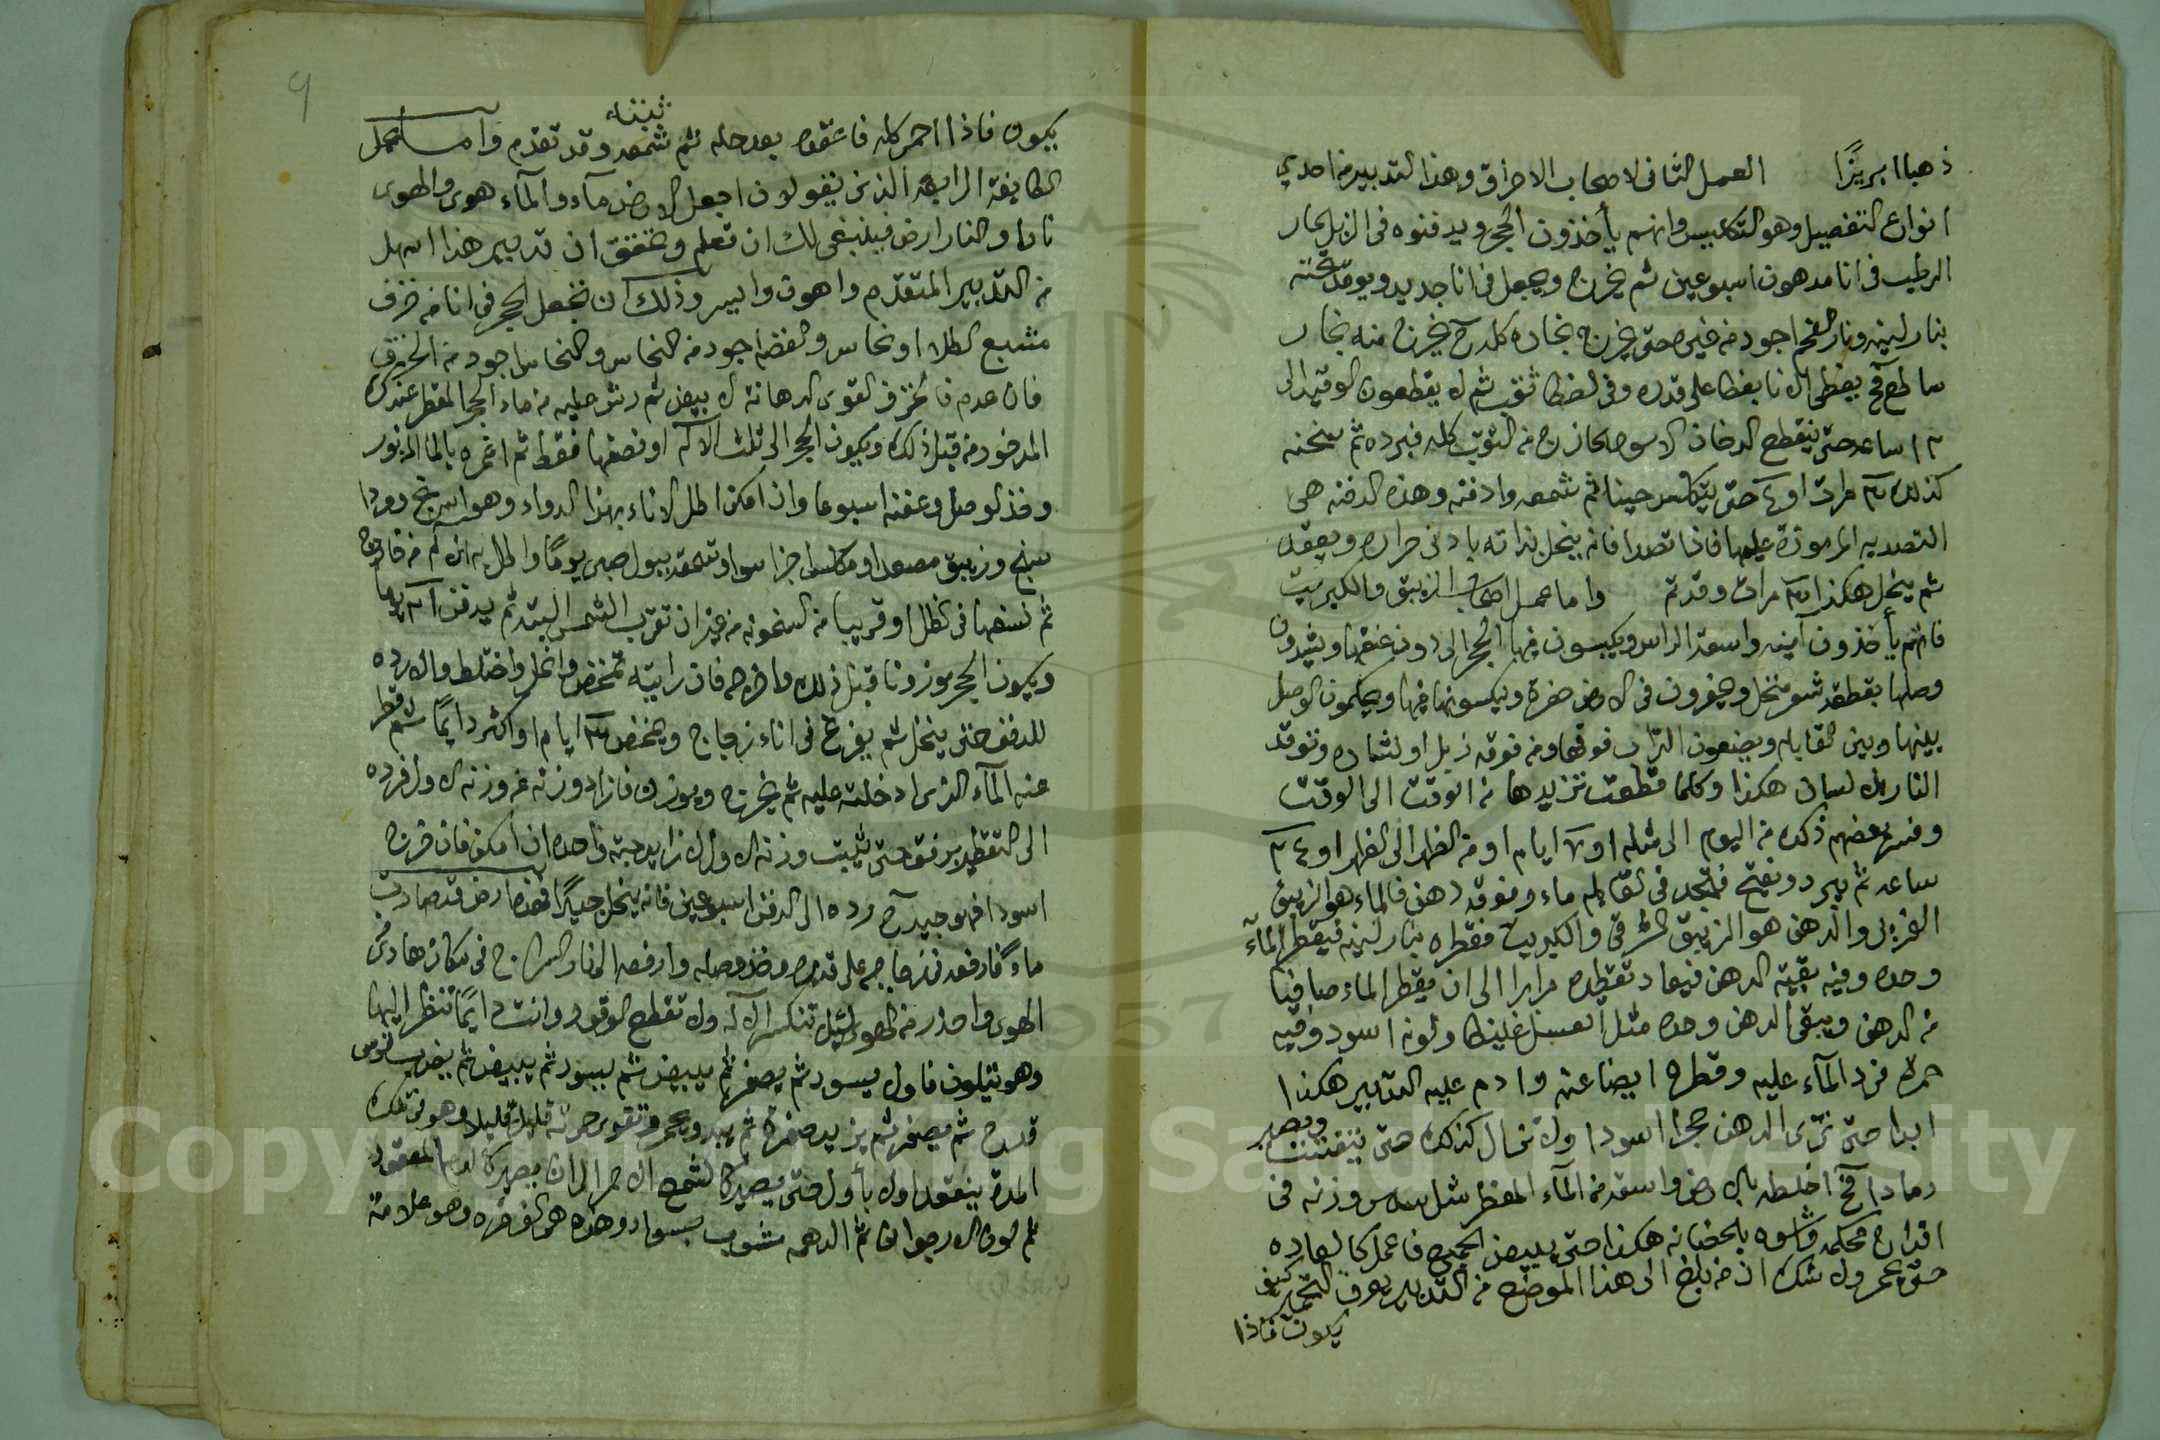 ذهبا ابريزًا العمل الثانى لاصحاب الاحراق وهذا التدبير من احدي
انواع التفصيل وهو التكليس وانهم يأخذون الحجر ويدفنوه فى الزبل الحار
الرطب فى انا مدهون اسبوعين ثم يخرج ويجعل فى انا جديد ويوقد تحته
بنار لينه ونار الفحم اجود من غيره حتى يخرج بخاره كله ثم يخرج منه بخار
ساطع فح يغطى الانا بغطا على قدره وفى الغطا ثقب ثم لا يقطعون الوقيد الى
١٢ ساعه حتى ينقطع الدخان الاسود الخارج من الثقب كله فبرده ثم سخنه
كذلك ٣ مرات او ٤ حتى يتكلس حينا ثم شمعه وادفنه وهذه الدفنه هى
التصديه المرموزة عليها فاذا تصدا فانه ينحل بذاته بادنى حراره ويعقد
ثم ينحل هكذا ٣ مرات وقد تم واما عمل اصحاب الزيبق والكبريت
فانهم يأخذون آنيه واسعة الراس ويكبسون فيها الحجر الى دون عنقها ويشدون
وصلها بقطعة شعر منخل ويحفرون فى الارض حفرة وينكسونها فيها ويحكمون الوصل
بينها وبين القابله ويضعون التراب فوقها ومن فوقه زبل او نشاره وتوقد
النار بلا لسان هكذا وكلما قطعت تزيدها من الوقت الى الوقت
وفسر بعضهم ذكره من اليوم الى مثله او ٧ ايام او من الظهر الى الظهر او ٢٤
ساعه ثم يبرد ويفتح فتجد فى القابله ماء وفوقه دهن فالماء هو الزيبق
الغربى والدهن هو الزيبق الشرقى والكبريت فقطره بنار لينه فيقطر المآء
وحده وفيه بقية الدهن فيعاد تقطيره مرارا الى ان يقطر الماء صافيا
من الدهن ويبقى الدهن وحده مثل العسل غليظا ولونه اسود وفيه
حمرة فرد المآء عليه وقطره ايضا عنه وادم عليه التدبير هكذا
ابدا حتى ترى الدهن حجرا اسودا ولا تزال كذلك حتى يتفتت ويصير
رمادا فح اخلطه بالارض واسقه من المآء المقطر مثل سدس وزنه فى
اقداح محكمه وشوه بالحضانه هكذا حتى يبيض الجميع فاعمل كالعاده
حتى يحمر ولا شك ان من بلغ الى هذا الموضع من التدبير يعرف التحمير كيف
يكون فاذا
٩
يكون فاذا احمر كله فاعقده بعد حله ثم شمعه ثبته وقد تقدم وآما عمل
الطايفة الرابعه الذين يقولون اجعل الارض مآء والمآء هوى والهوى
نارا والنار ارض فينبغى لك ان تعلم وتحقق ان تدبير هذا اسهل
من التدبير المتقدم واهون وايسر وذلك ان تجعل الحجر فى انا من خزف
مشبع الطلا او نحاس والفضه اجود من النحاس والنحاس اجود من الخزف
فان عدم فالخزف القوى الدهانه الابيض ثم رش عليه من ماء الحجر المقطر عندك
المدخور من قبل ذلك ويكون الحجر الى ثلث الآله او نصفها فقط ثم اغمره بالما المزبور
وخذ الوصل وعفنه اسبوعا وان امكن اطل الاناء بهذا الدواء وهو اسرنج ورودا
سنج وزيبق مصعد او مكلس اجزا سوا وتسحقه ببول صبى يوما واطل به الاله من خارج
ثم نسفها فى الظل او قريبا من السخونه من غير ان تقرب الشمس البته ثم يدفن ٢١ يوما
ويكون الحجر موزونا قبل ذلك واخرجه فان رايته تمخض وانحل واختلط والا رده
للدفن حتى ينحل ثم يفرغ فى اناء زجاج ويمخض ٣ ايام او اكثر دايما ثم قطر
عنه المآء الذى ادخلته عليه ثم يخرج ويوزن فان زاد وزنه عن وزنه الاول فرده
الى التقطير برفق حتى يثبت وزنه الاول لا زايد حبة واحده ان امكن فان خرج
اسودا فهو جيد ثم رده الى الدفن اسبوعين فانه ينحل جيدا فهذه ارض قد صارت
ماء فارفعه فى زجاجه على قدره وخذ وصله وارفعه الى نار السراج فى مكان هادى
الهوى واحذر من الهوى لئيلا تنكسر الآله ولا تقطع الوقود وانت دايما تنظر اليها
وهو يتلون فاول يسود ثم يصفر ثم يبيض ثم يسود ثم يبيض ثم يضرب قوس
قدح ثم يصفر ثم يزيد صفرة ثم يبدو يحمر وتقوى حمرته قليلا قليلا وهو فى تلك
المدة ينعقد اولا بأول حتى يصير كالشمع الاحمر الى ان يصير كالدم المعقود
ثم لون الارجوان ثم الدهمه مشوب بسواد وهذه هى الفرفره وهو علامة